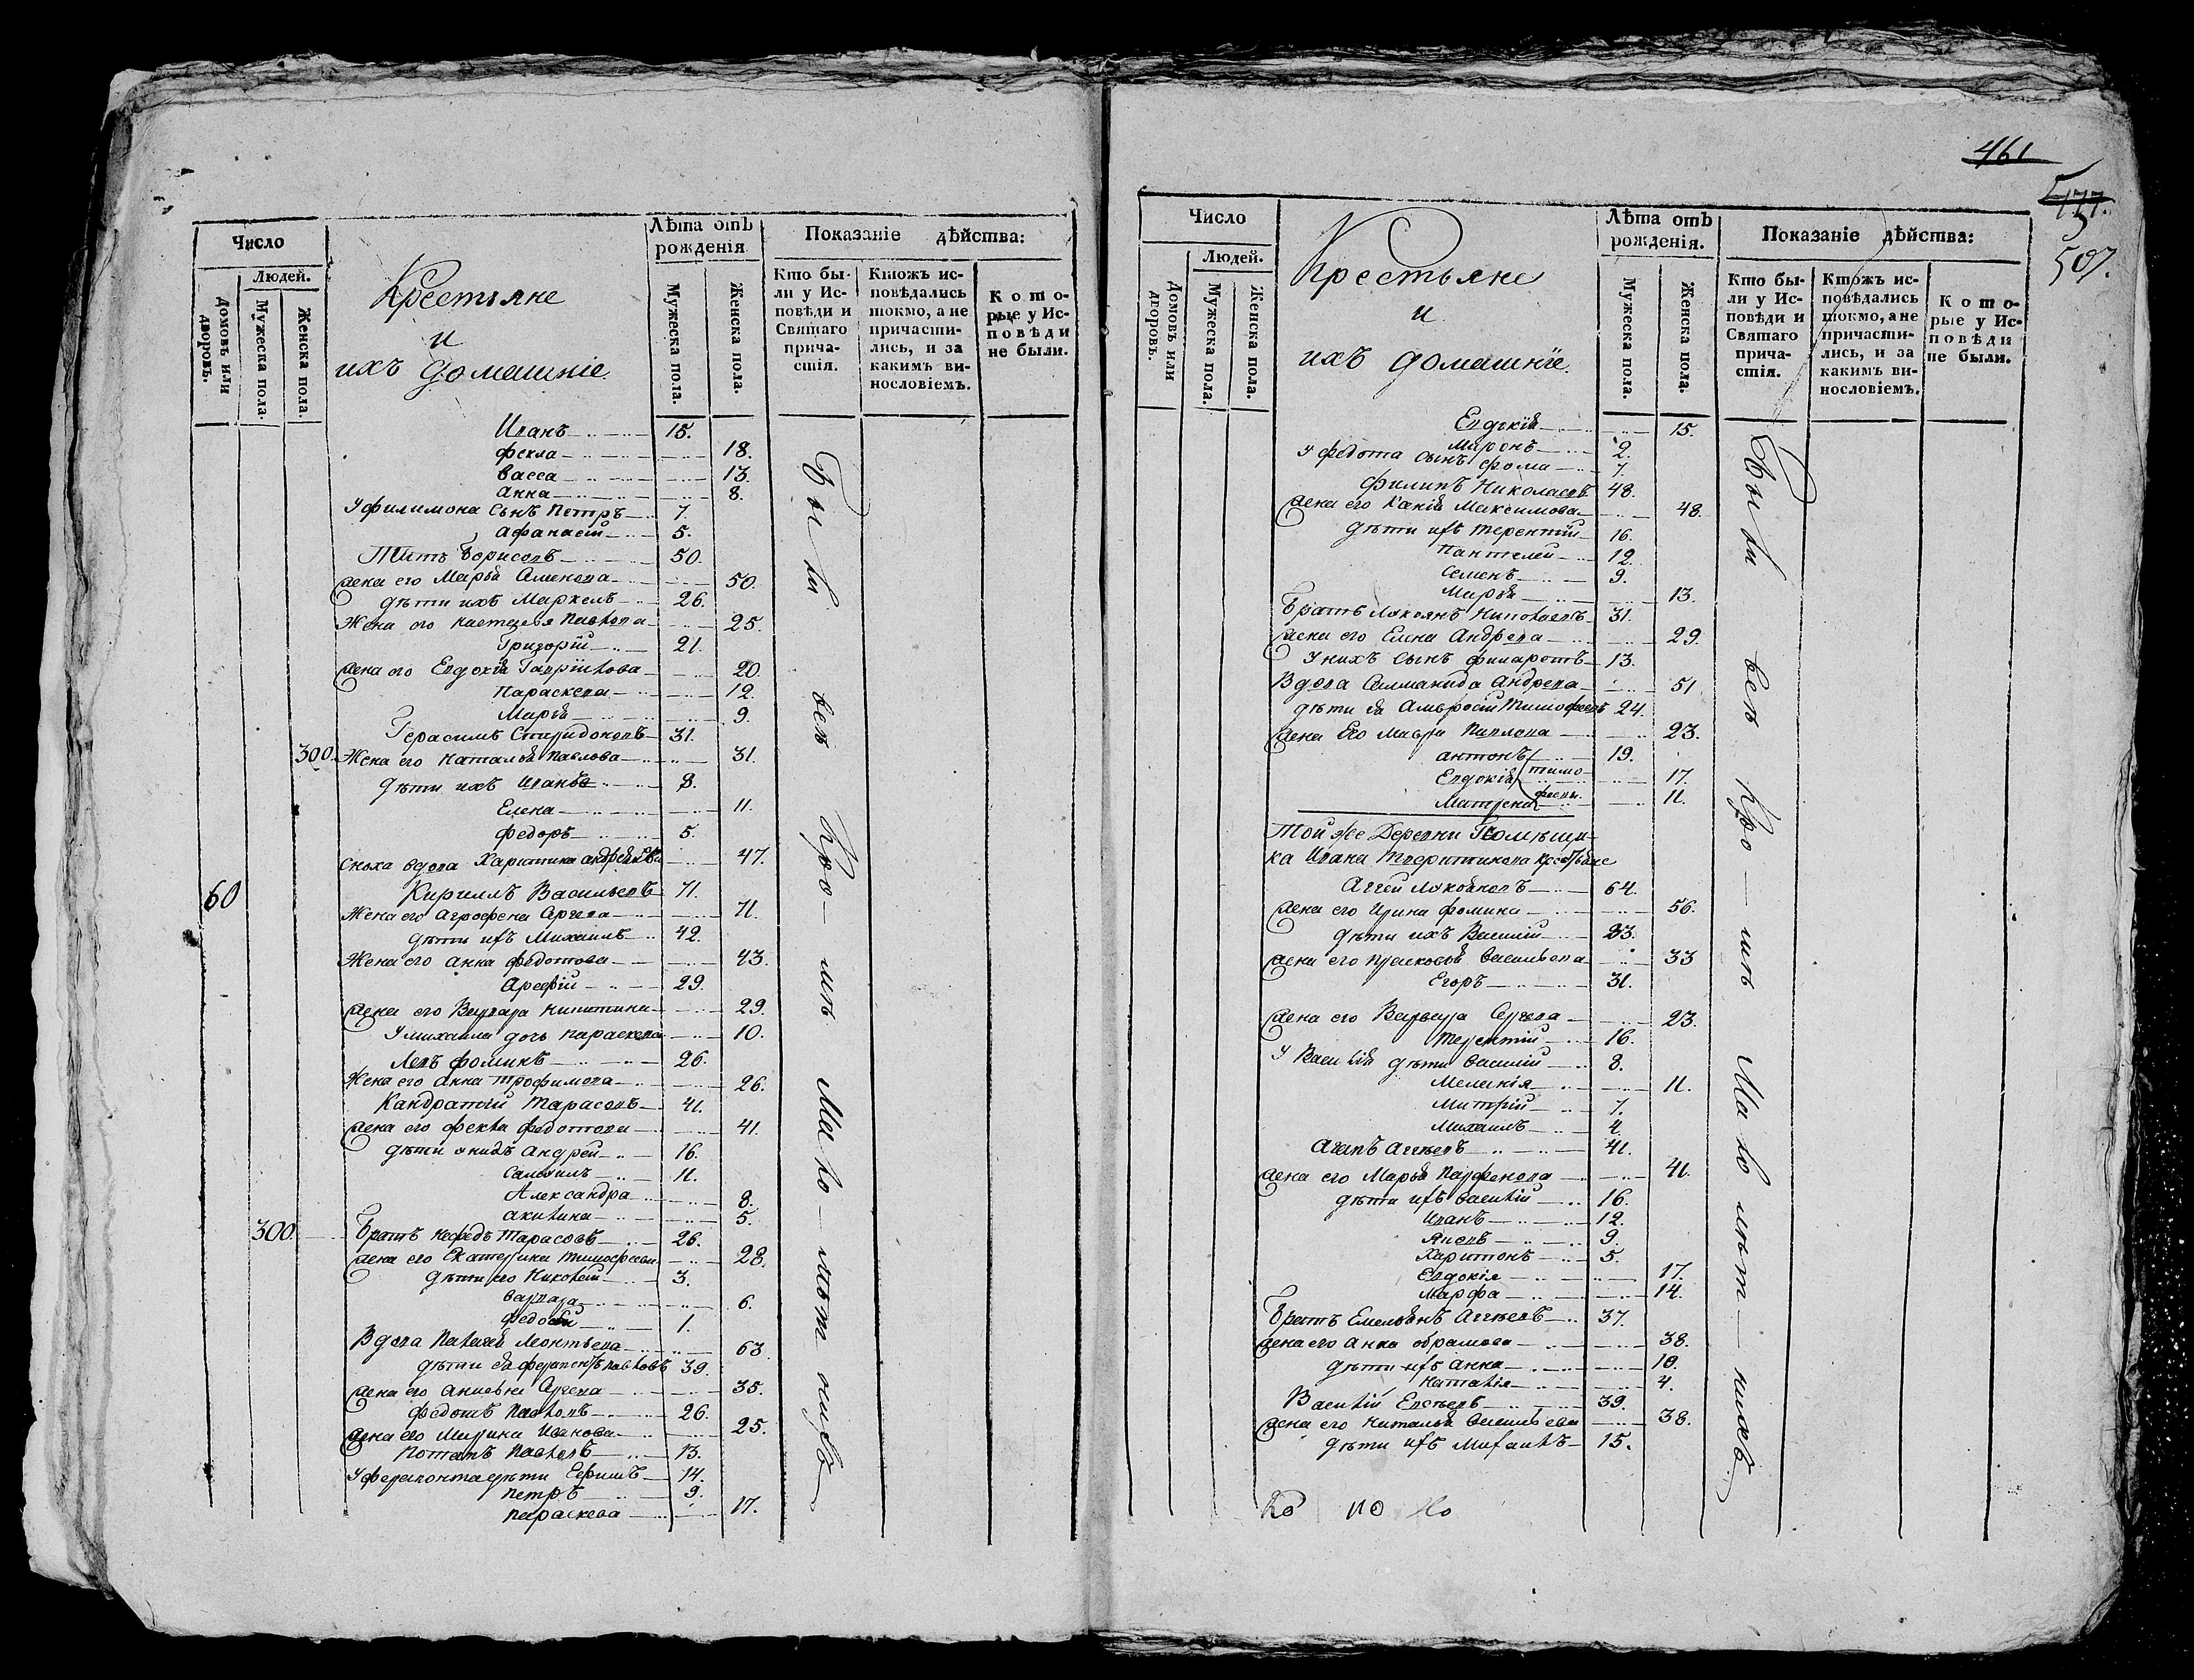 Число
Людей.
Домовъ или дворовъ.
Мужеска пола.
Женска пола.
Крестьяне
и
ихъ домашніе
Лѣта отъ
рожденія
Мужеска пола.
Женска пола.
Показаніе дѣйства:
Кто бы-
ли у Ис-
повѣди и
Святаго
прича-
стія.
Ктожъ ис-
повѣдались
токмо, а не
причасти-
лись, и за
какимъ ви-
нословіемъ.
Кото-
рые у Ис-
повѣди
не были.
Иванъ 15.
Фекла 18.
Васса 13.
Анна 8.
У Филимона сынъ Петръ 7.
Афанасій 5.
Титъ Борисовъ 50.
жена его Марья Семенова 50.
дѣти ихъ Маркелъ 26.
Жена его Настасья Павлова 25.
Григорій 21.
жена его Евдокія Гаврилова 20.
Параскева 12.
Марья 9.
Герасимъ Спиридоновъ 31.
300. Жена его Наталья Павлова 31.
дѣти ихъ Иванъ 8.
Елена 11.
Федоръ 5.
сноха вдова Харитина 47.
60 Кирилъ Васильевъ 71.
Жена его Агрофена 71.
дѣти ихъ Михаилъ 42.
Жена его Анна Федотова 43.
Арефій 29.
жена его Варвара Никитина 29.
У Михаила дочь Параскева 10.
Левъ Фоминъ 26.
Жена его Анна Трофимова 26.
Кандратій Тарасовъ 41.
жена его Фекла Федотова 41.
дѣти Андрей 16.
Самоилъ 11.
Александра 8.
Акилина 5.
300. Братъ Нефедъ Тарасовъ 26.
жена его Екатерина Тимофеева 28.
дѣти его Николай 3.
Варвара 6.
1.
Вдова Пелагея Леонтьева 63.
дѣти ея Ферапонтъ Павловъ 39.
жена его 35.
Федотъ Павловъ 26.
жена его Марина Иванова 25.
Потапъ Павловъ 13.
У Ферапонта дѣти Ефимъ 14.
Петръ 9.
Параскева 17.
Были всѣ
461
507.
Число
Людей.
Домовъ или дворовъ.
Мужеска пола.
Женска пола.
Крестьяне
и
ихъ домашніе
Лѣта отъ
рожденія.
Мужеска пола.
Женска пола.
Показаніе дѣйства:
Кто бы-
ли у Ис-
повѣди и
Святаго
прича-
стія.
Ктожъ ис-
повѣдались
токмо, а не
причасти-
лись, и за
какимъ ви-
нословіемъ.
Кото-
рые у Ис-
повѣди
не были.
Евдокія 15.
Миронъ 2.
У Федота сынъ Фома 7.
Филипъ Николаевъ 48.
жена его Максимова 48.
дѣти ихъ Терентій 16.
Пантелей 12.
Семенъ 9.
Марья 13.
Братъ Лукоянъ Николаевъ 31.
жена его Елена Андреева 29.
У нихъ сынъ Филаретъ 13.
Вдова Андреева 51
дѣти ея Амвросій Тимофеевъ 24.
жена Его Мавра Павлова 23.
Антонъ 19.
Евдокія 17.
Матрена 11.
Тимо
феевы
Той же Деревни Помѣщи-
ка Ивана крестьяне
Аггей 64.
жена его Ирина Фомина 56.
дѣти ихъ Василій 33.
жена его Прасковья Васильева 33
Егоръ 31.
жена его Варвара Сергеева 23.
Терентій 16.
У Василія дѣти Василій 8.
Меланія 11.
Митрій 7.
Михаилъ 4.
Агапъ Аггѣевъ 41.
жена его Марья Парфенова 41.
дѣти ихъ Василій 16.
Иванъ 12.
Яковъ 9.
Харитонъ 5.
Евдокія 17.
Марфа 14.
Братъ Емельянъ Аггѣевъ 37.
жена его Анна Абрамова 38.
дѣти ихъ Анна 10.
Наталія 4.
Василій Евсѣевъ 39.
жена его Наталья Васильева 38.
дѣти ихъ Михаилъ 15.
Были всѣ